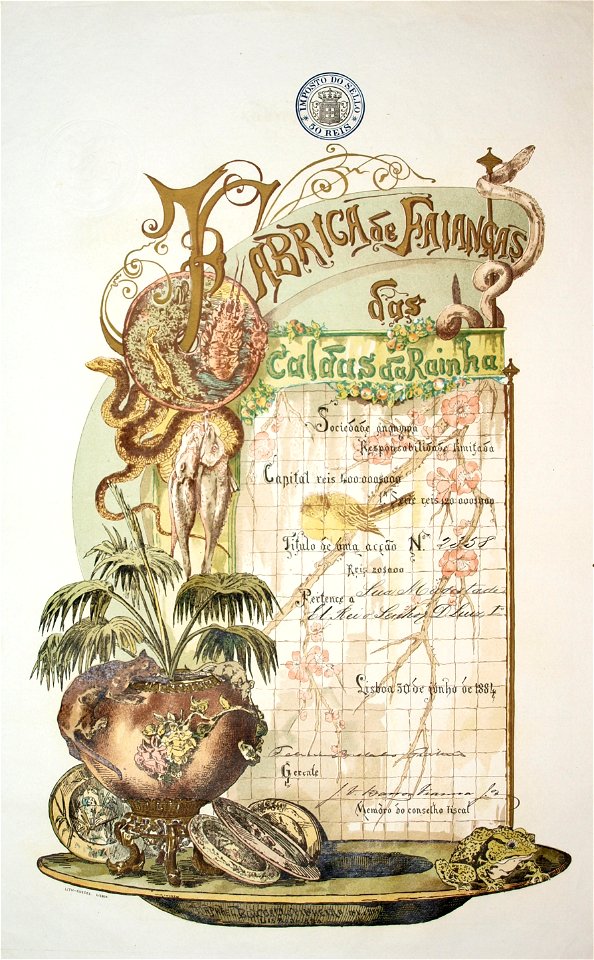 IMPOSTO DO SELLO
50 REIS
FABRICA de FAIANÇAS
das
Caldas da Rainha
Sociedade anonyma
Responsabilidade limitada
Capital reis
1ª Serie reis
Titulo de uma acção Nº 2358
Reis 20$000
Pertence a Sua Magestade
El Rei o Senhor D Luiz 1º
Lisboa 30 de junho de 1884
Gerente
Membro do conselho fiscal